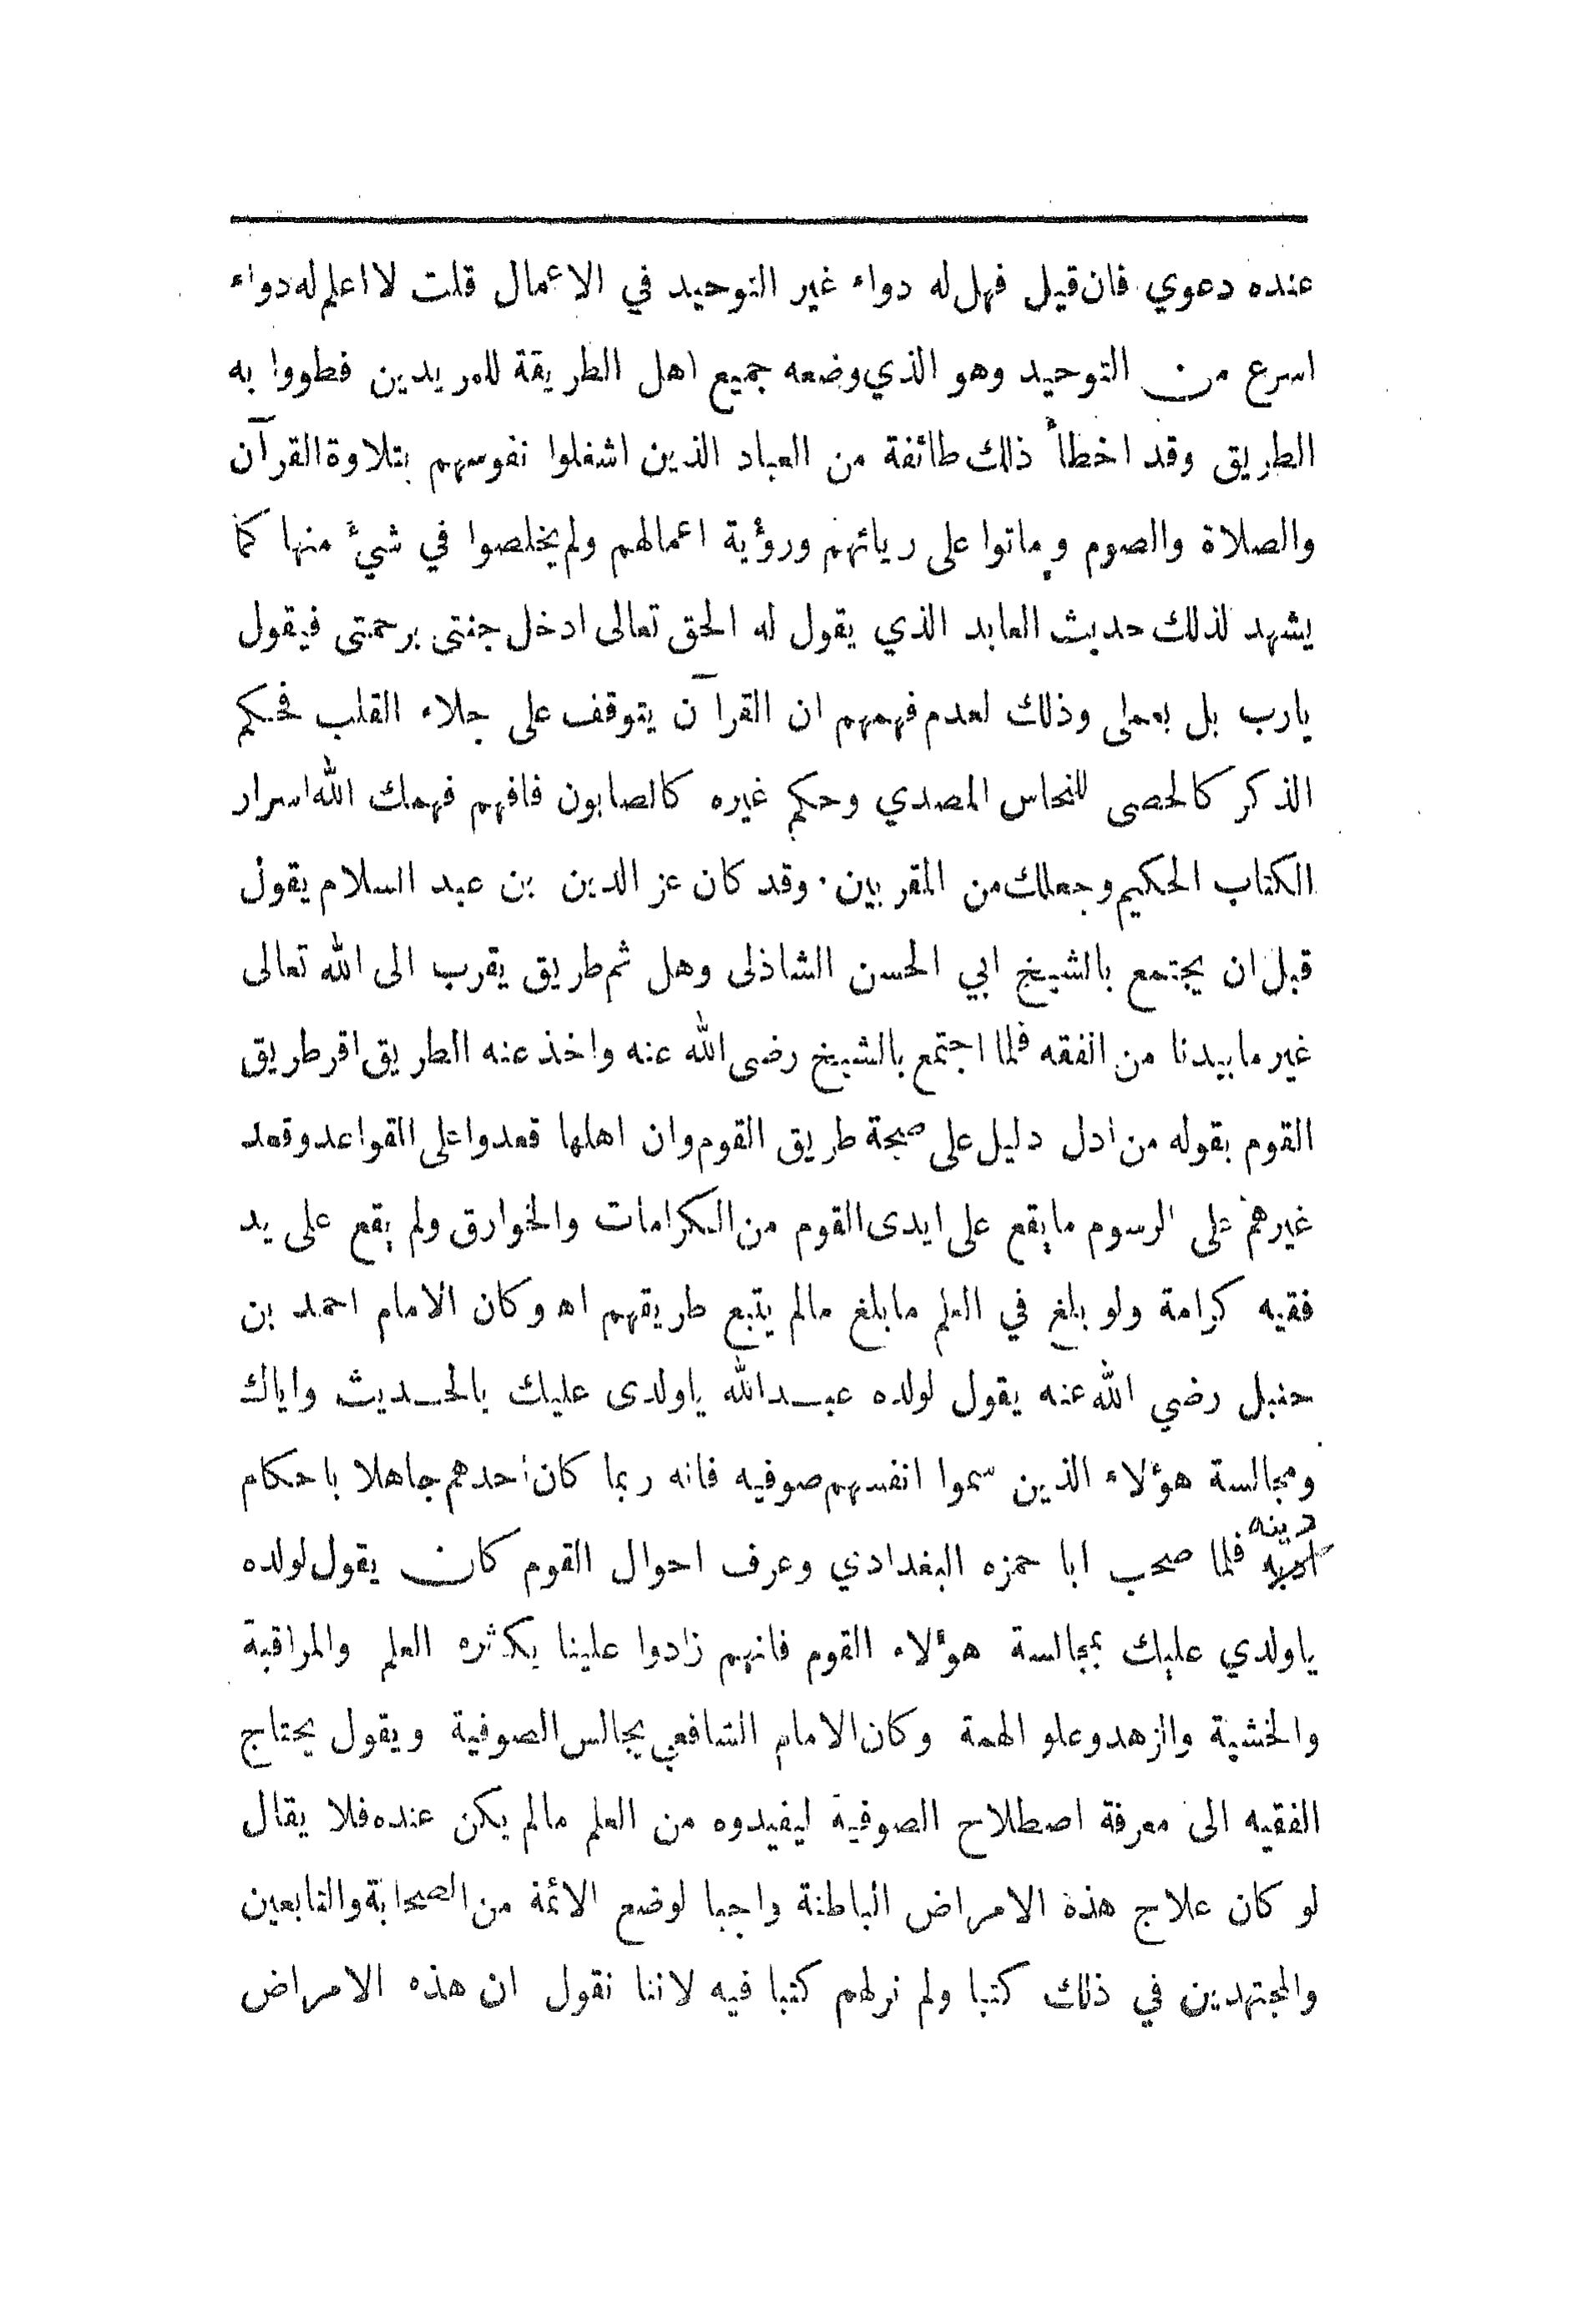 عنده دعوي فان قيل فهل له دواء غير التوحيد في الاعمال قلت لا اعلم له دواء
اسرع من التوحيد وهو الذي وضعه جميع اهل الطريقة للمريدين فطووا به
الطريق وقد اخطأ ذلك طائفة من العباد الذين اشغلوا نفوسهم بتلاوة القرآن
والصلاة والصوم وماتوا على ريائهم ورؤية اعمالهم ولم يخلصوا في شيءٔ منها كما
يشهد لذلك حديث العابد الذي يقول له الحق تعالى ادخل جنتى برحمتى فيقول
يارب بل بعملى وذلك لعدم فهمهم ان القرآن يتوقف على جلاء القلب فحكم
الذكر كالحصى للنحاس المصدي وحكم غيره كالصابون فافهم فهمك الله اسرار
الكتاب الحكيم وجعلك من المقربين. وقد كان عز الدين بن عبد السلام يقول
قبل ان يجتمع بالشيخ ابي الحسن الشاذلى وهل ثم طريق يقرب الى الله تعالى
غير ما بيدنا من الفقه فلما اجتمع بالشيخ رضى الله عنه واخذ عنه الطريق اقر طريق
القوم بقوله من ادل دليل على صحة طريق القوم وان اهلها قعدوا على القواعد وقعد
غيرهم على الرسوم ما يقع على ايدى القوم من الكرامات والخوارق ولم يقع على يد
فقيه كرامة ولو بلغ في العلم مابلغ مالم يتبع طريقهم اه وكان الامام احمد بن
حنبل رضي الله عنه يقول لولده عبدالله ياولدى عليك بالحديث واياك
ومجالسة هؤلاء الذين سموا انفسهم صوفيه فانه ربما كان احدهم جاهلا باحكام
دينه فلما صحب ابا حمزه البغدادي وعرف احوال القوم كان يقول لولده
ياولدي عليك بمجالسة هؤلاء القوم فانهم زادوا علينا بكثره العلم والمراقبة
والخشية والزهد وعلو الهمة وكان الامام الشافعي يجالس الصوفية ويقول يحتاج
الفقيه الى معرفة اصطلاح الصوفية ليفيدوه من العلم مالم يكن عنده فلا يقال
لو كان علاج هذه الامراض الباطنة واجبا لوضع الائمة من الصحابة والتابعين
والمجتهدين في ذلك كتبا ولم نر لهم كتبا فيه لاننا نقول ان هذه الامراض